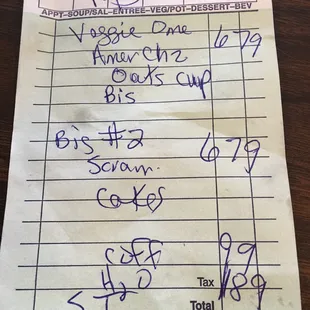 APPT-SOUP/SAL-ENTREE-VEG/POT-DESSERT-BEV
Veggie Ome 679
Amer Chz
Oats cup
Bis
Big #2 679
Scram.
Cakes
Coff 99
H2O Tax 189
Total